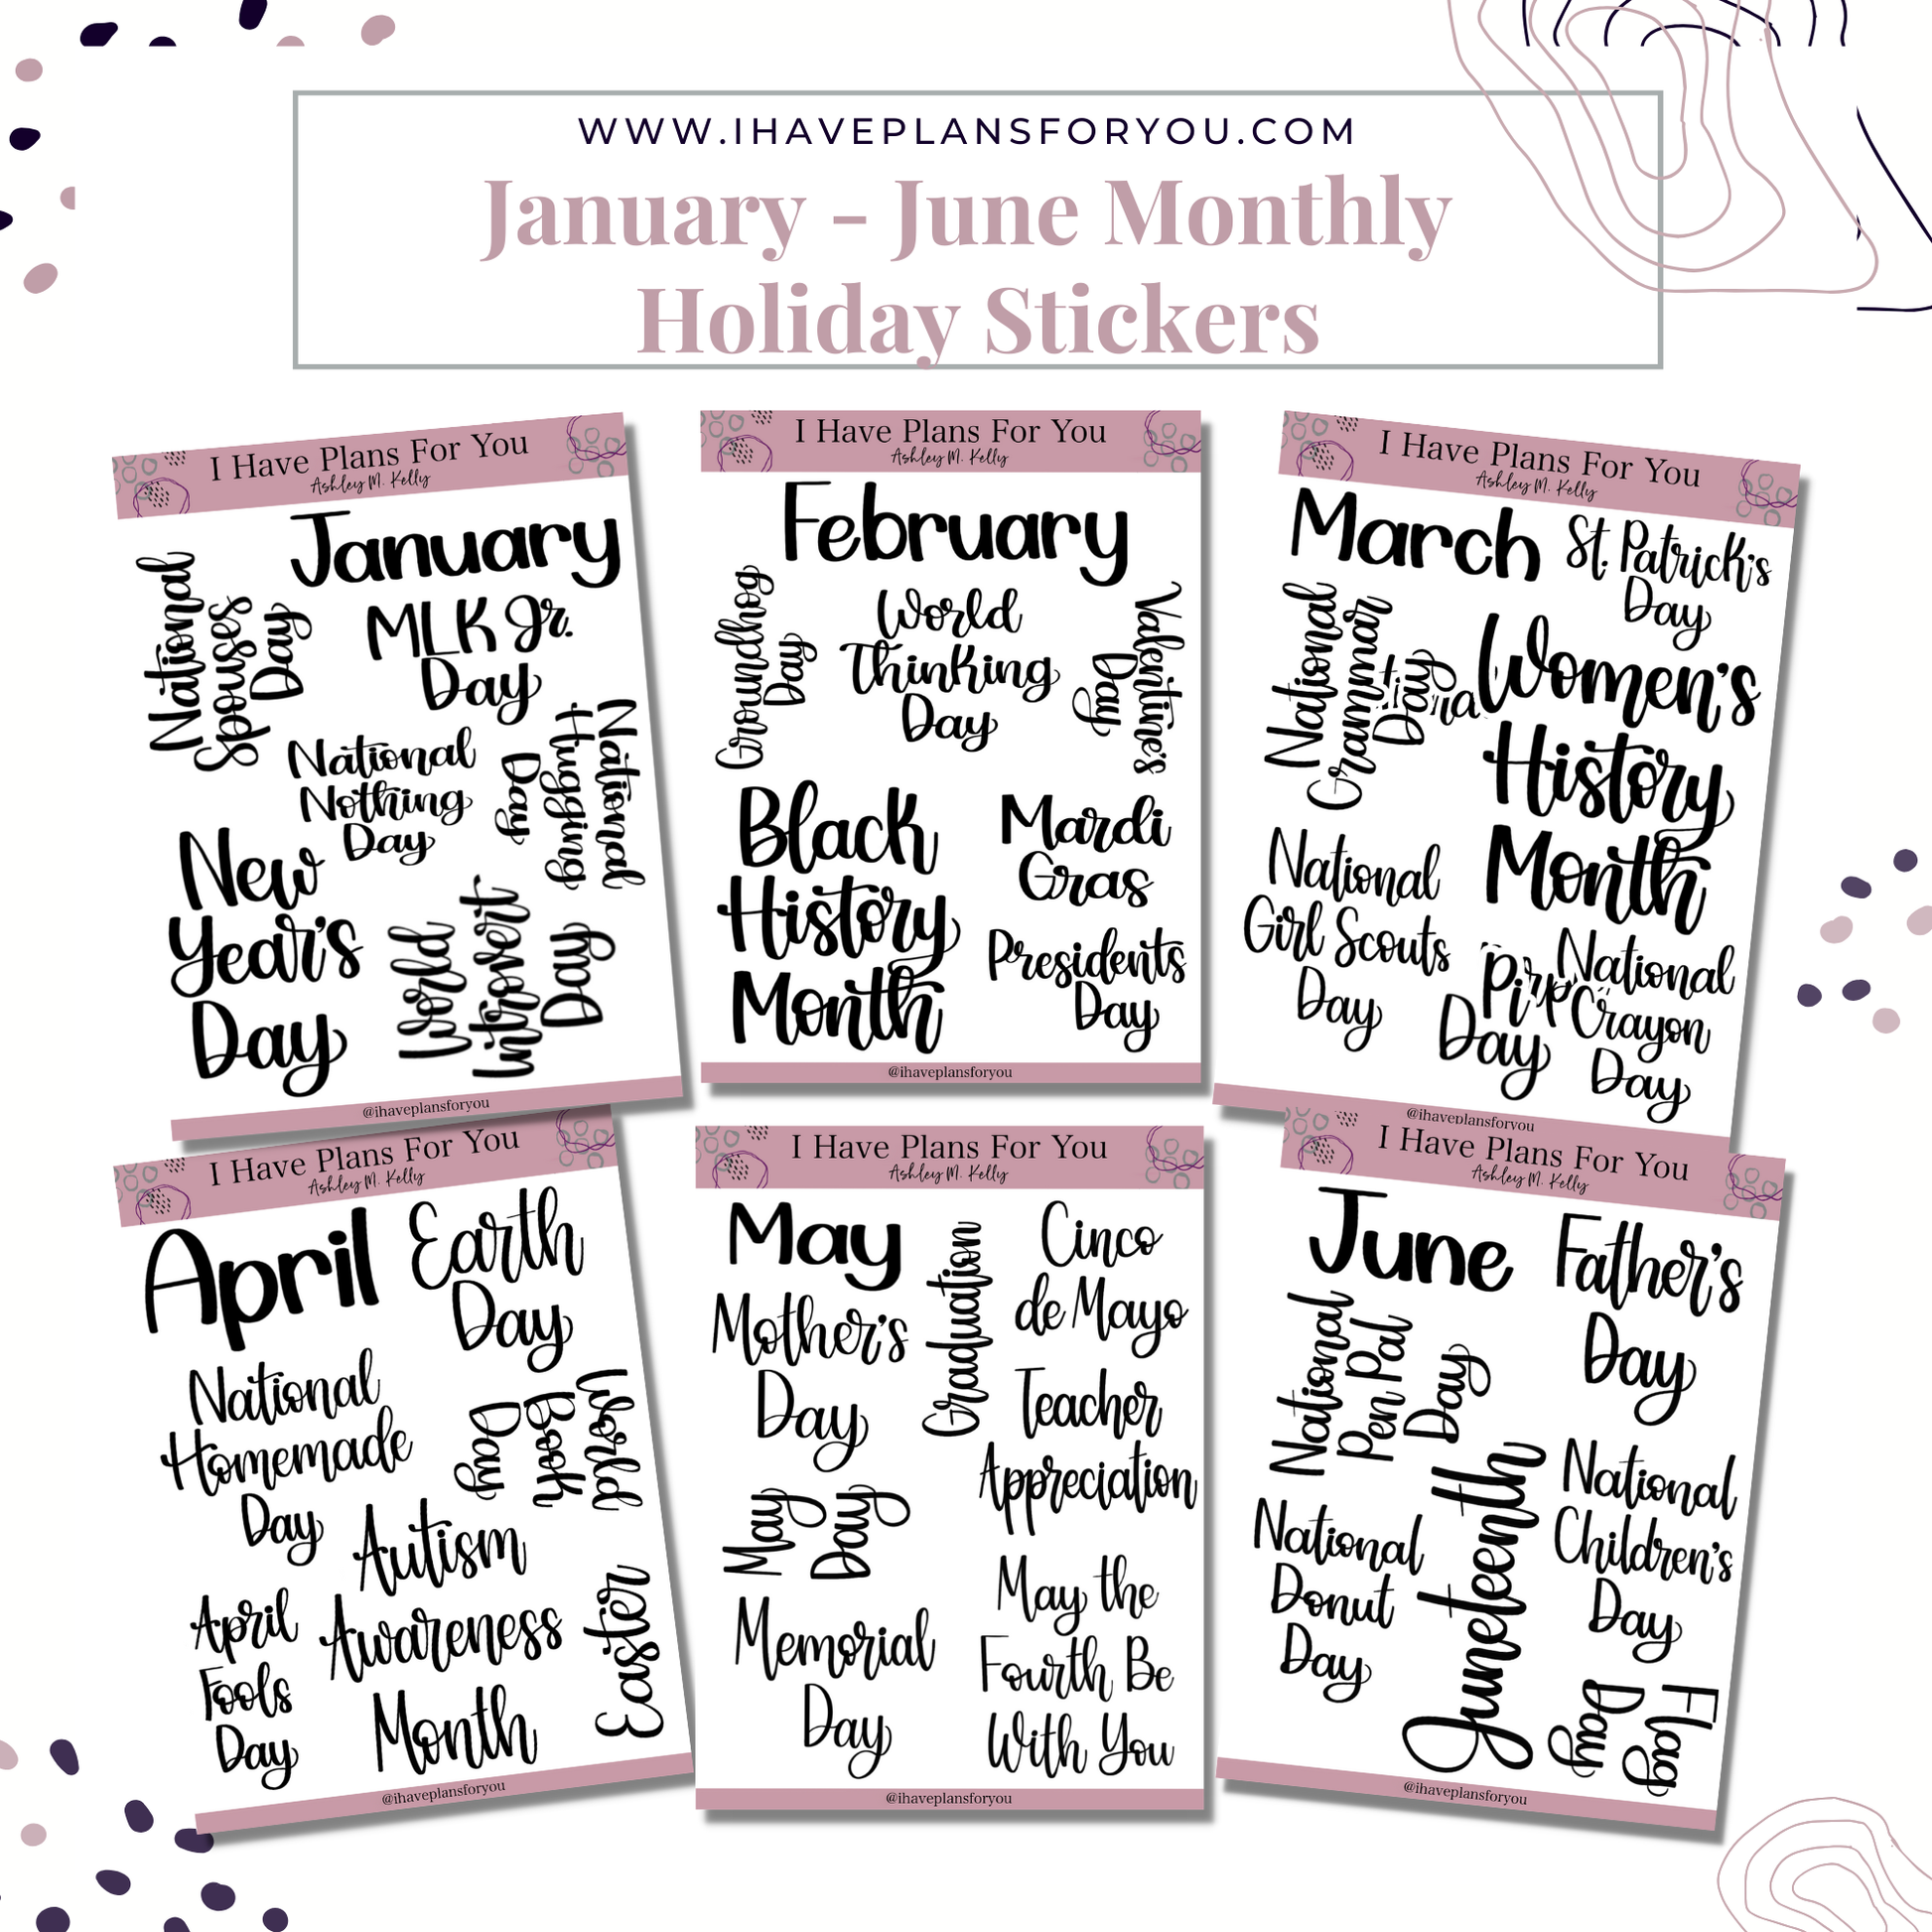 WWW.IHAVEPLANSFORYOU.COM
January - June Monthly
Holiday Stickers
I Have Plans For You
Ashley M. Kelly
January
National
Spouses
Day
MLK Jr.
Day
National
Nothing
Day
National
Hugging
Day
New
Year's
Day
World
Introvert
Day
@ihaveplansforyou
I Have Plans For You
Ashley M. Kelly
February
Groundhog
Day
World
Thinking
Day
Valentine's
Day
Black
History
Month
Mardi
Gras
Presidents
Day
@ihaveplansforyou
I Have Plans For You
Ashley M. Kelly
March
St. Patrick's
Day
National
Grammar
Day
Women's
History
Month
National
Girl Scouts
Day
Pi
Day
National
Crayon
Day
@ihaveplansforyou
I Have Plans For You
Ashley M. Kelly
April
Earth
Day
National
Homemade
Day
World
Book
Day
Autism
Awareness
Month
April
Fools
Day
Easter
@ihaveplansforyou
I Have Plans For You
Ashley M. Kelly
May
Mother's
Day
Graduation
Cinco
de Mayo
Teacher
Appreciation
May
Day
Memorial
Day
May the
Fourth Be
With You
@ihaveplansforyou
I Have Plans For You
Ashley M. Kelly
June
Father's
Day
National
Pen Pal
Day
National
Donut
Day
Juneteenth
National
Children's
Day
Flag
Day
@ihaveplansforyou